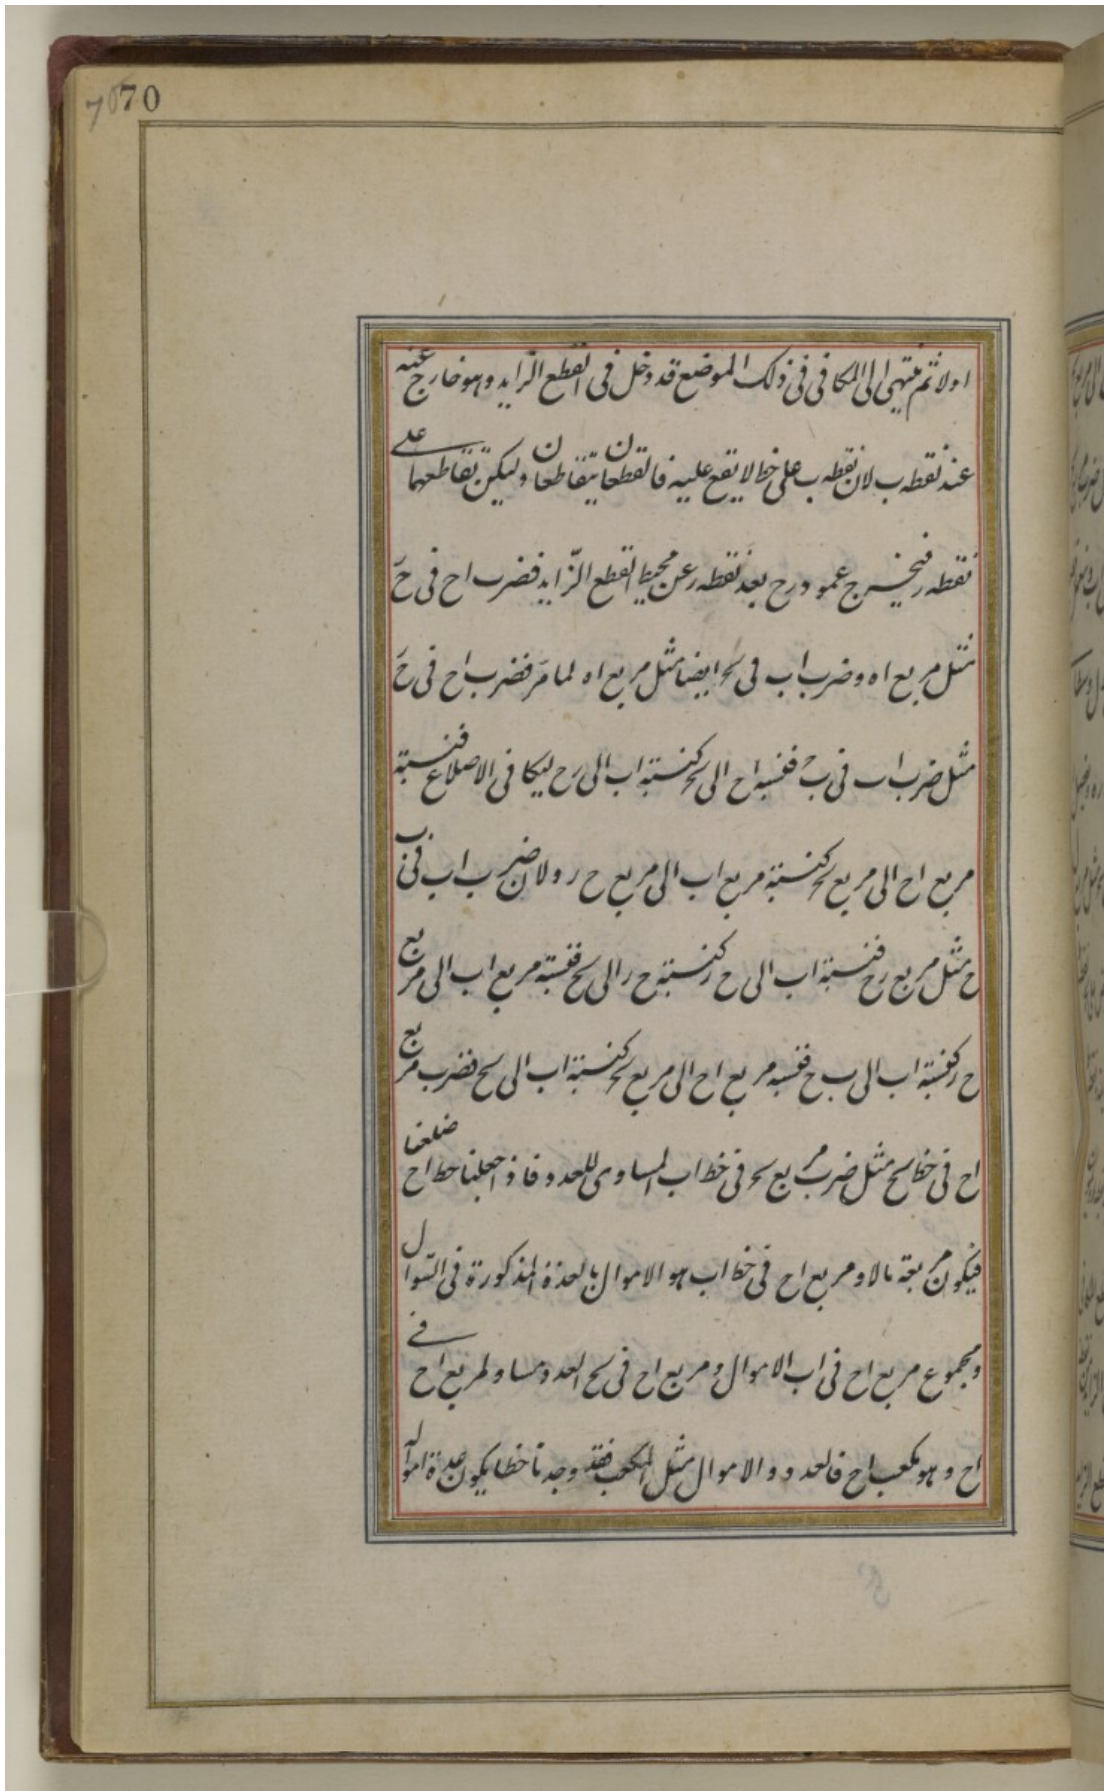 70 70
اولا ثم ينتهى الى المكافى فى ذلك الموضع قد دخل فى القطع الزايد وهو خارج عنه
عند نقطه ب لان نقطه ب على خط لا يقع عليه فالقطعان يتقاطعان وليكن تقاطعهما على
نقطه ر فيخرج عمود رح بعد نقطه ر عن محيط القطع الزّايد فضرب اح فى حر
مثل مربع اه وضرب اب فى بح ايضا مثل مربع اه لما مرّ فضرب اح فى حر
مثل ضرب اب فى بح فنسبه اح الى بح كنسبته اب الى رح ليكافى الاضلاع فنسبته
مربع اح الى مربع بح كنسبته مربع اب الى مربع ح ر ولان ضرب اب فى ب
ح مثل مربع رح فنسبته اب الى ح ر كنسبته ح ر الى بح فنسبته مربع اب الى مربع
ح ر كنسبته اب الى ب ح فنسبه مربع اح الى مربع بح كنسبته اب الى بح فضرب مربع
اح فى خط بح مثل ضرب مربع بح فى خط اب المساوى للعدد فاذ اجعلنا خط اح ضلعا
فيكون مربعة مالا ومربع اح فى خط اب هو الاموال بالعدة المذكورة فى السّوال
ومجموع مربع اح فى اب الاموال ومربع اح فى بح العدد مساو لمربع اح فے
اح وهو مكعب اح فالعدد والاموال مثل المكعب فقد وجدنا خطا يكون عدة امواله